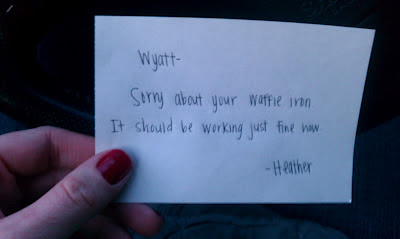 Wyatt-
Sorry about your waffle iron
It should be working just fine now.
-Heather